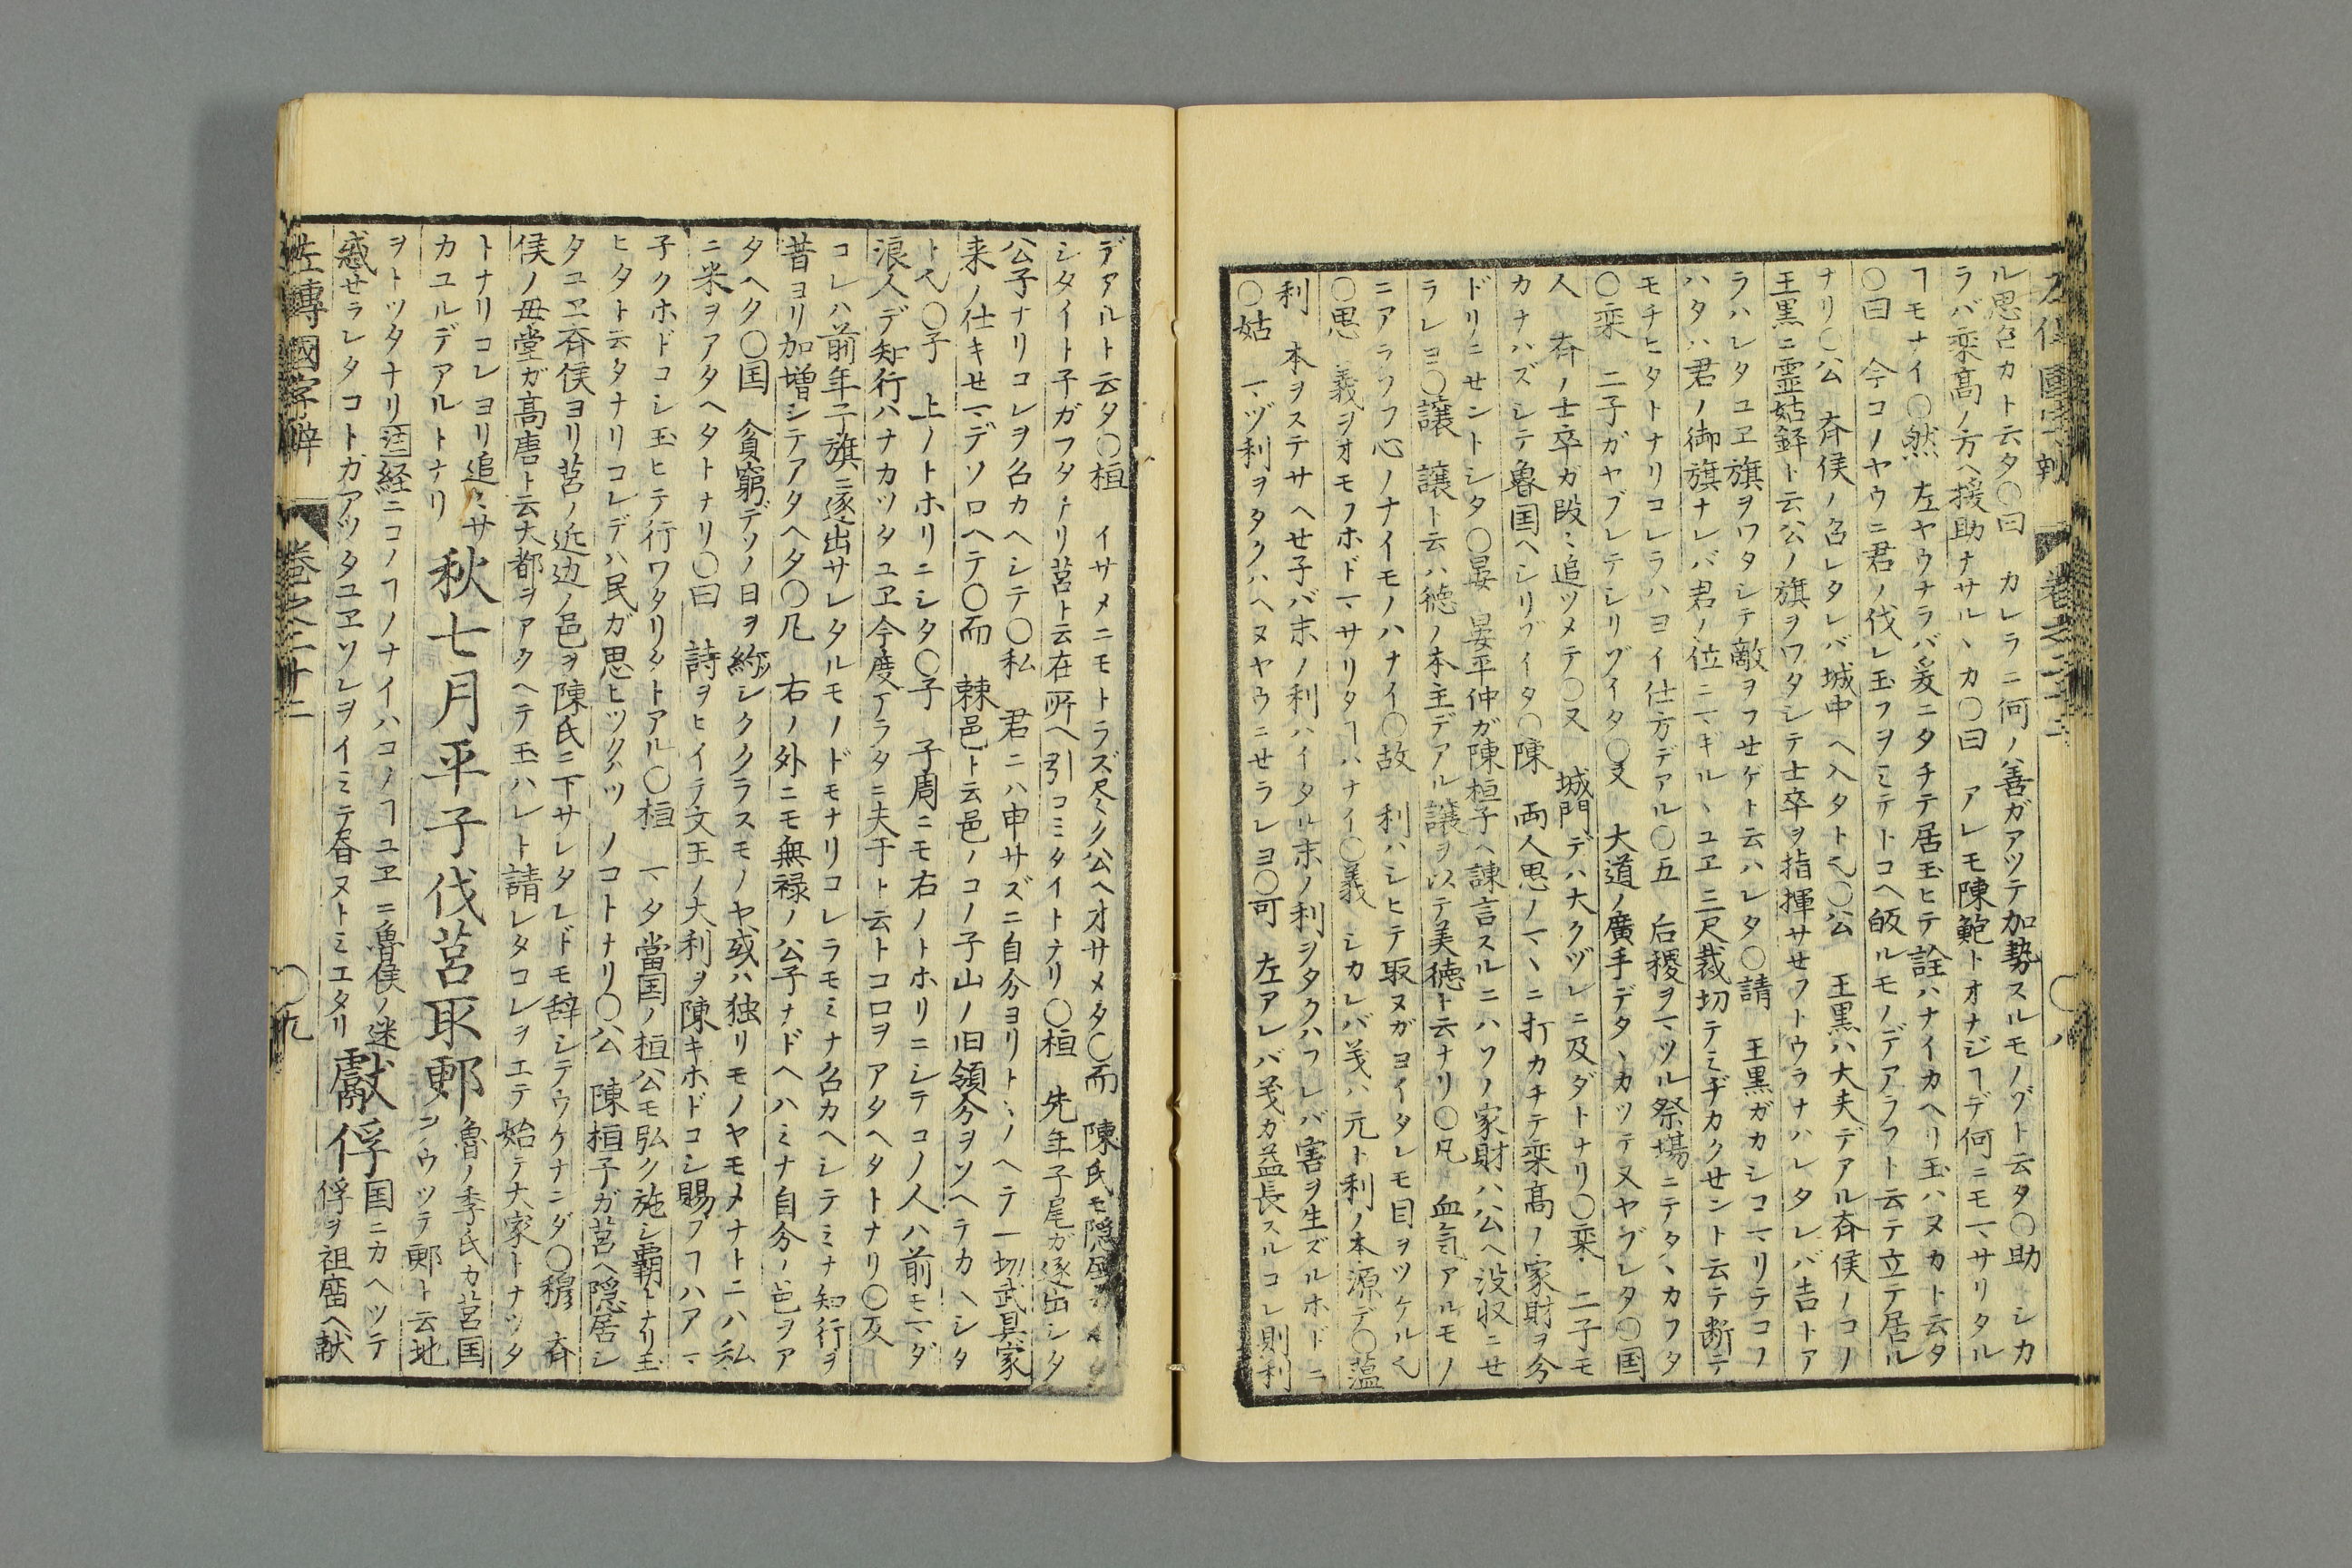 ル思召カト云タ〇曰 カレラニ何ノ善ガアツテ加勢スルモノゾト云タ〇助 シカ
ラバ欒高ノ方ヘ援助ナサルヽカ〇曰 アレモ陳鮑トオナジヿデ何ニモマサリタル
ヿモナイ〇然 左ヤウナラバ爰ニタチテ居玉ヒテ詮ハナイカヘリ玉ハヌカト云タ
〇曰 今コノヤウニ君ノ伐レ玉フヲミテトコヘ皈ルモノデアラフト云テ立テ居ル
ナリ〇公 斉侯ノ召レタレバ城中ヘ入タト〇公 王黒ハ大夫デアル斉侯ノコノ
王黒ニ霊姑銔ト云公ノ旗ヲワタシテ士卒ヲ指揮サセフトウラナハレタレバ吉トア
ラハレタユヱ旗ヲワタシテ敵ヲフせゲト云ハレタ〇請 王黒ガカシコマリテコノ
ハタハ君ノ御旗ナレバ君ノ位ニマギルヽユヱ三尺裁切テミヂカクせント云テ断テ
モチヒタトナリコレラハヨイ仕方デアル〇五 后稷ヲマツル祭場ニテタヽカフタ
〇欒 二子ガヤブレテシリゾイタ〇又 大道ノ廣手デタヽカツテ又ヤブレタ〇国
人 斉ノ士卒ガ段々追ツメテ〇又 城門デハ大クヅレニ及ダトナリ〇欒 二子モ
カナハズシテ魯国ヘシリゾイタ〇陳 両人思ノマヽニ打カチテ欒高ノ家財ヲ分
ドリニせントシタ〇晏 晏平仲ガ陳桓子ヘ諌言スルニハソノ家財ハ公ヘ没収ニせ
ラレヨ〇譲 譲ト云ハ徳ノ本主デアル譲ヲ以テ美徳ト云ナリ〇凡 血気アルモノ
ニアラソフ心ノナイモノハナイ〇故 利ハシヒテ取ヌガヨイタレモ目ヲツケル
〇思 義ヲオモフホドマサリタヿハナイ〇義 シカレバ義ハ元ト利ノ本源デ〇薀
利 本ヲステサヘせ子バ末ノ利ハイタル末ノ利ヲタクハフレバ害ヲ生ズルホドニ
〇姑 マヅ利ヲタクハヘヌヤウニせラレヨ〇可 左アレバ義ガ益長スルコレ則利
デアルト云タ〇桓 イサメニモトラズ尽ク公ヘオサメタ〇而 陳氏モ隠居
シタイト子ガフタナリ莒ト云在所ヘ引コミタイトナリ〇桓 先年子尾ガ逐出シタ
公子ナリコレヲ召カヘシテ〇私 君ニハ申サズニ自分ヨリトヽノヘテ一切武具家
来ノ仕キせマデソロヘテ〇而 棘邑ト云邑ノコノ子山ノ旧領分ヲソヘテカヘシタ
ト〇子 上ノトホリニシタ〇子 子周ニモ右ノトホリニシテコノ人ハ前モマダ
浪人デ知行ハナカツタユヱ今度アラタニ夫于ト云トコロヲアタヘタトナリ〇反
コレハ前年子旗ニ逐出サレタルモノドモナリコレラモミナ召カヘシテミナ知行ヲ
昔ヨリ加増シテアタヘタ〇凡 右ノ外ニモ無禄ノ公子ナドヘハミナ自分ノ邑ヲア
タヘタ〇国 貧窮デソノ日ヲ約シククラスモノヤ或ハ独リモノヤモメナトニハ私
ニ米ヲアタヘタトナリ〇曰 詩ヲヒイテ文王ノ大利ヲ陳キホドコシ賜フヿハアマ
子クホドコシ玉ヒテ行ワタリタトアル〇桓 マタ當国ノ桓公モ弘ク施シ覇トナリ玉
ヒタト云タナリコレデハ民ガ思ヒツクハヅノコトナリ〇公 陳桓子ガ莒ヘ隠居シ
タユヱ斉侯ヨリ莒ノ近辺ノ邑ヲ陳氏ニ下サレタレドモ辞シテウケナンダ〇穆 斉
侯ノ毋堂ガ高唐ト云大都ヲアタヘテ玉ハレト請レタコレヲエテ始テ大家トナツタ
トナリコレヨリ追々サカユルデアルトナリ 秋七月平子伐莒取郠 魯ノ季氏カ莒国ヲウツテ郠ト云地
ヲトツタナリ注経ニコノヿノナイハコノヿユヱニ魯侯ノ迷惑せラレタコトガアツタユヱソレヲイミテ書ヌトミエタリ 獻俘 国ニカヘツテ俘ヲ祖廟ヘ献
左傳國字辯 巻之二十二 〇九